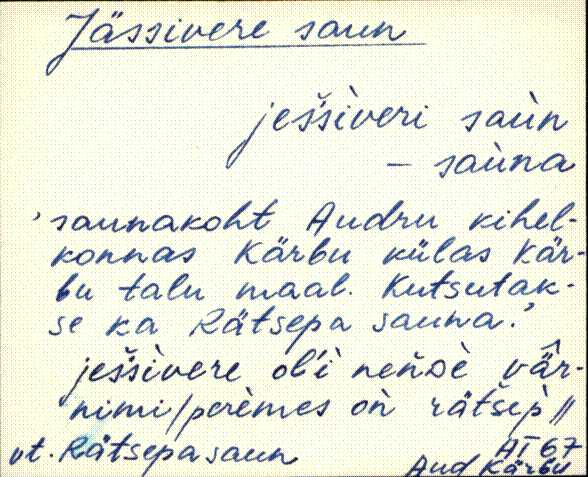 Jässivere saun
ješ̀šìveri saùn
– saùna
'saunakoht Audru kihel-
konnas Kärbu külas Kär-
bu talu maal. Kutsutak-
se ka Rätsepa sauna.'
ješ̀šìvere ol'ì neńdè vâ̈r-
nimi/perèmes oǹ rätšep̀//
vt. Rätsepa saun AT 67
Aud Kärbu